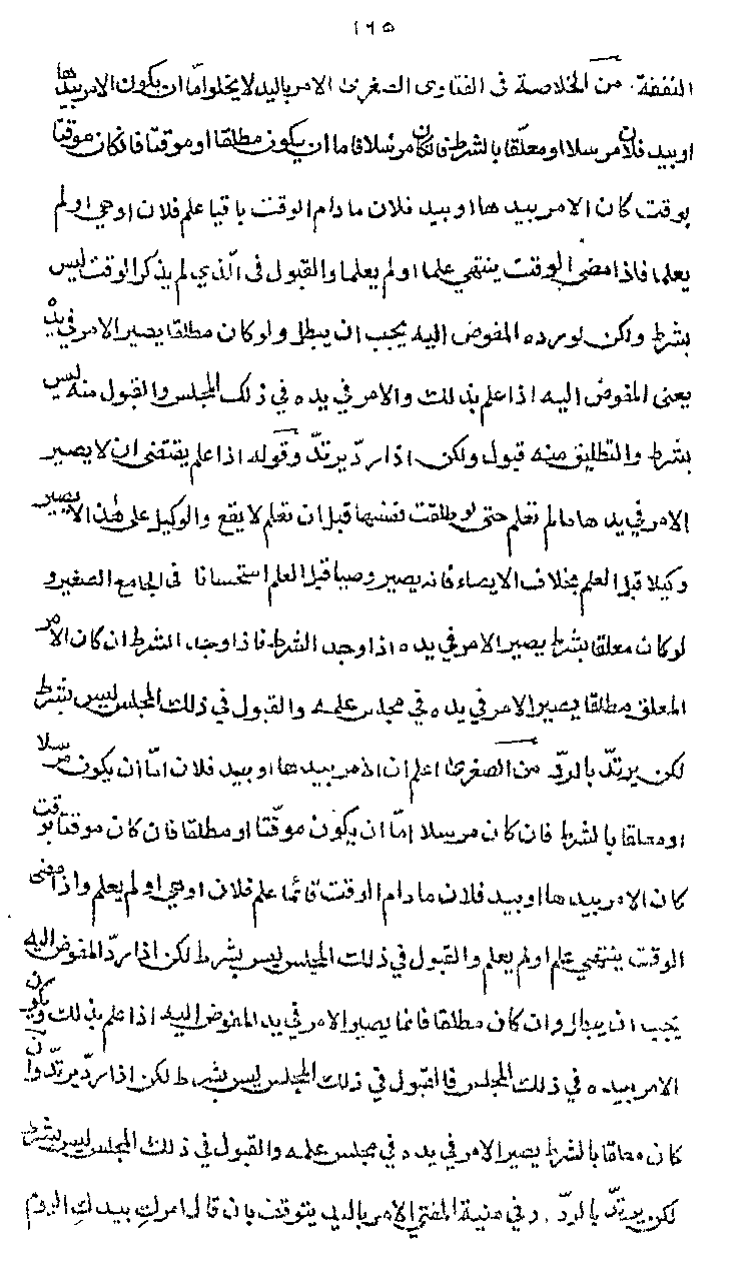 ١٦٥
النفقة. من الخلاصة فى الفتاوى الصغرى الامر باليد لا يخلو امّا ان يكون الامر بيدها
او بيد فلان مرسلا او معلّقا بالشرط فان كان مرسلا فاما ان يكون مطلقا او موقتا فان كان موقتا
بوقت كان الامر بيدها او بيد فلان ما دام الوقت باقيا علم فلان او هي او لم
يعلما فاذا مضى الوقت ينتهي علما او لم يعلما والقبول فى الّذي لم يذكر الوقت ليس
بشرط ولكن لو رده المفوض اليه يجب ان يبطل ولو كان مطلقا يصير الامر في يده
يعنى المفوض اليه اذا علم بذلك والامر في يده في ذلك المجلس والقبول منه ليس
بشرط والتطليق منه قبول ولكن اذا ردّ يرتدّ وقوله اذا علم يقتضى ان لا يصير
الامر في يدها ما لم تعلم حتى لو طلقت نفسها قبل ان تعلم لا يقع والوكيل على هذا لا يصير
وكيلا قبل العلم بخلاف الايصاء فانه يصير وصيا قبل العلم استحسانا فى الجامع الصغير و
لو كان معلقا بشرط يصير الامر في يده اذا وجد الشرط فاذا وجد الشرط ان كان الامر
المعلق مطلقا يصير الامر في يده في مجلس علمه والقبول في ذلك المجلس ليس بشرط
لكن يرتدّ بالردّ من الصغرى اعلم ان الامر بيدها او بيد فلان امّا ان يكون مرسلا
او معلقا بالشرط فان كان مرسلا امّا ان يكون موقّتا او مطلقا فان كان موقتا بوقت
كان الامر بيدها او بيد فلان ما دام الوقت قائما علم فلان او هي او لم يعلم واذا مضى
الوقت ينتهي علم او لم يعلم والقبول في ذلك المجلس ليس بشرط لكن اذا ردّ المفوض اليه
يجب ان يبطل وان كان مطلقا فانما يصير الامر في يد المفوض اليه اذا علم بذلك ويكون
الامر بيده في ذلك المجلس فالقبول في ذلك المجلس ليس بشرط لكن اذا ردّ يرتدّ وان
كان معلقا بالشرط يصير الامر في يده في مجلس علمه والقبول في ذلك المجلس ليس بشرط
لكن يرتدّ بالردّ. وفي منية المفتي الامر باليد يتوقت بان قال امركِ بيدكِ اليوم